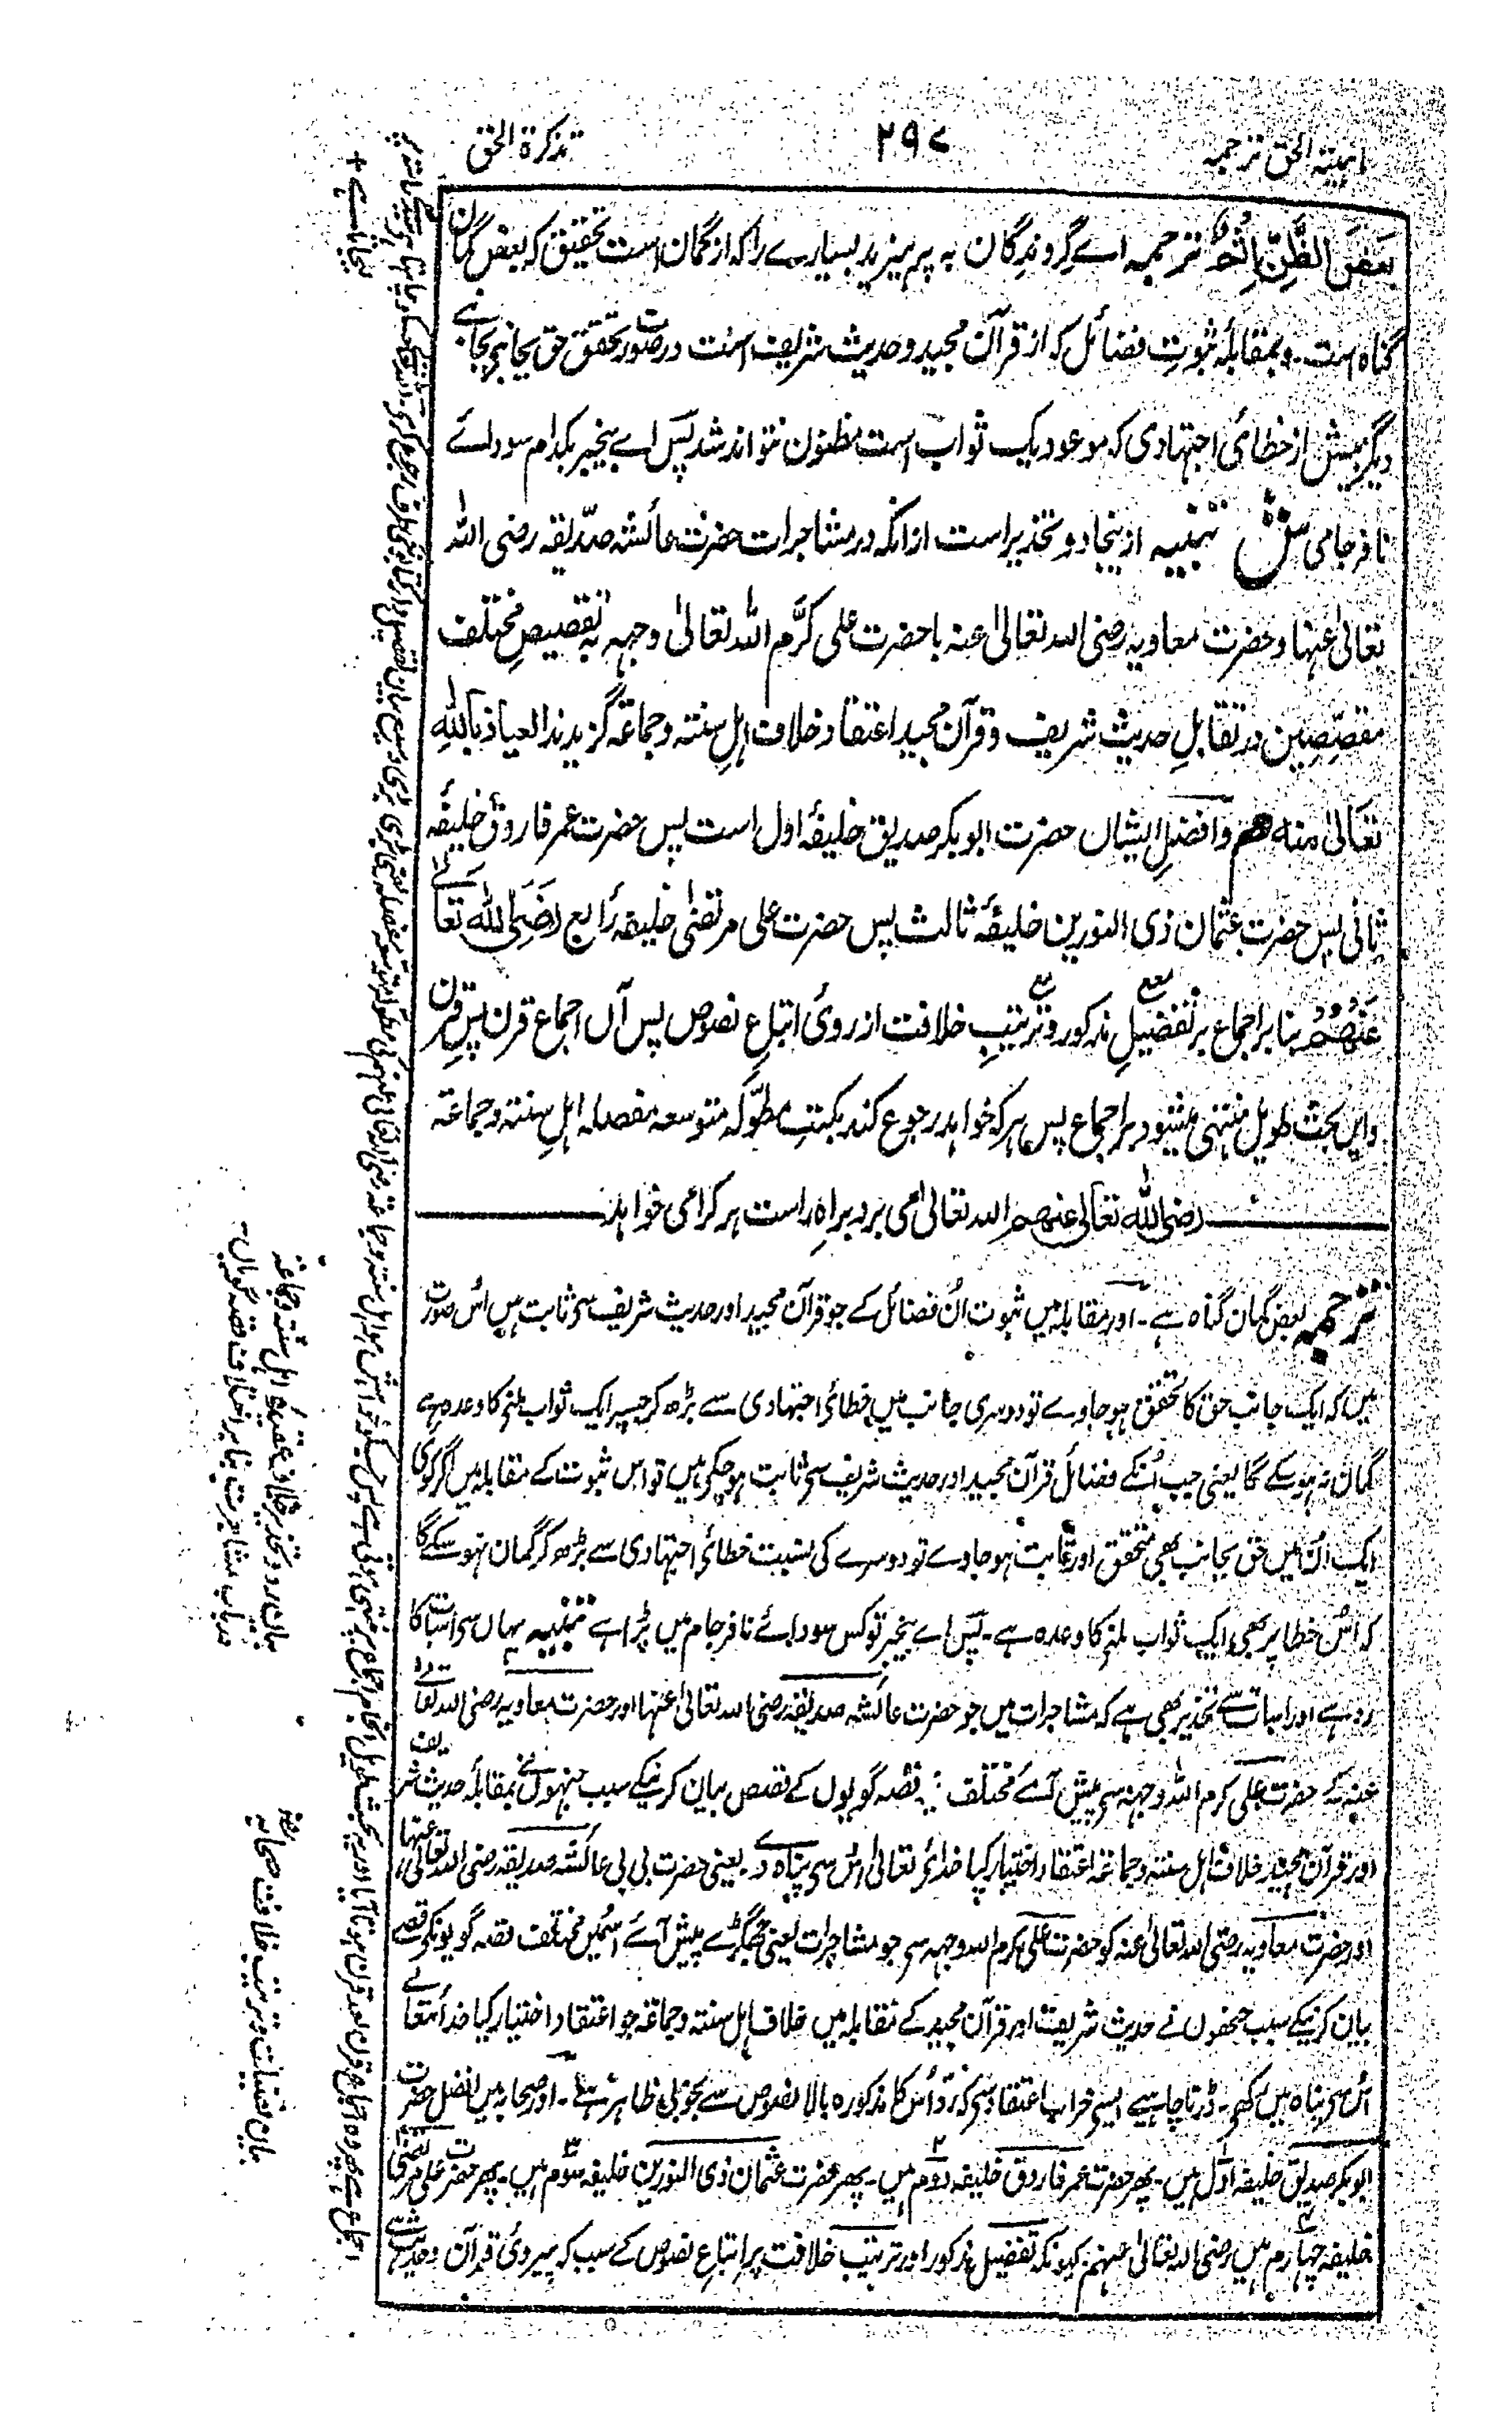 ترجمہ
۲۹۷
تذکرۃ الحق
بَعْضَ الظَّنِّ اِثْمٌ ترجمہ اے گروندگان بہ پرہیزید بسیارے را کہ از گمان است تحقیق کہ بعض گمان
گناہ است۔ وبمقابلہ ثبوتِ فضائل کہ از قرآن مجید و حدیث شریف است درصورت تحقق حق بجانبے بجانبے
دیگر بیش از خطائی اجتہادی کہ موعود یک ثواب است مظنون نتواند شد پس اے بیخبر بکدام سودائے
نافرجامی ش تنبیہ از ینجا رد و تحذیر است ازانکہ در مشاجرات حضرت عائشہ صدّیقہ رضی اللہ
تعالیٰ عنہا و حضرت معاویہ رضی اللہ تعالیٰ عنہ با حضرت علی کرَّم اللہ تعالیٰ وجہہ بہ تقصیصِ مختلف
مقصّصِین در تقابلِ حدیث شریف و قرآن مجید اعتقاد خلاف اہلِ سنتہ وجماعۃ گزیدند العیاذ باللہِ
تعالیٰ منہ هم وافضلِ ایشان حضرت ابوبکر صدیق خلیفۂ اول است پس حضرت عمر فاروق خلیفۂ
ثانی پس حضرت عثمان ذی النورین خلیفۂ ثالث پس حضرت علی مرتضیٰ خلیفۂ رابع رَضِیَ اللّٰہُ تعالےٰ
عَنْهُمْ بنا بر اجماع بر تفضیلِ مذکور و ترتیبِ خلافت از روئ اتباعِ نصوص پس آں اجماع قرن پس قرن
واین بحث طویل منتہی میشود بر اجماع پس ہر کہ خواہد رجوع کند بکتبِ مطوّلہ متوسعہ مفصلہ اہلِ سنتہ وجماعۃ
رضی اللہ تعالیٰ عنہم اللہ تعالیٰ می برد براہِ راست ہر کرا می خواہد
ترجمہ بعض گمان گناہ ہے۔ اور مقابلہ میں ثبوت اُن فضائل کے جو قرآن مجید اور حدیث شریف سی ثابت ہیں اُس صورت
میں کہ ایک جانب حق کا تحقق ہوجاوے تو دوسری جانب میں خطائ اجتہادی سے بڑھ کر جسپر ایک ثواب ملنے کا وعدہ ہے
گمان نہ ہوسکے گا یعنی جب اُنکے فضائل قرآن مجید اور حدیث شریف سی ثابت ہوچکی ہیں تو اس ثبوت کے مقابلہ میں اگر کوئی
ایک اُن میں حق بجانب بھی متحقق اور ثابت ہوجاوے تو دوسرے کی نسبت خطائ اجتہادی سے بڑھ کر گمان نہو سکے گا
کہ اُس خطا پر بھی ایک ثواب ملنے کا وعدہ ہے۔ پس اے بیخبر تو کس سودائے نافرجام میں پڑا ہے تنبیہ یہاں سی اس بات کا
رد ہے اور اس بات سے تحذیر بھی ہے کہ مشاجرات میں جو حضرت عائشہ صدیقہ رضی اللہ تعالیٰ عنہا اور حضرت معاویہ رضی اللہ تعالےٰ
عنہ کے حضرت علی کرم اللہ وجہہ سی پیش آئے مختلف قصہ گویوں کے قصص بیان کرنیکے سبب جنہوں نے بمقابلہ حدیث شریف
اور قرآن مجید خلاف اہل سنتہ وجماعۃ اعتقاد اختیار کیا خدائ تعالیٰ اُس سی پناہ دے۔ یعنی حضرت بی بی عائشہ صدیقہ رضی اللہ تعالیٰ عنہا
اور حضرت معاویہ رضی اللہ تعالیٰ عنہ کو حضرت علی کرم اللہ وجہہ سی جو مشاجرات یعنی جھگڑے پیش آئے اسمیں مختلف قصہ گویونکی قصے
بیان کرنیکے سبب جنھوں نے حدیث شریف اور قرآن مجید کے مقابلہ میں خلاف اہل سنتہ وجماعۃ جو اعتقاد اختیار کیا خدا تعالےٰ
اُس سی پناہ میں رکھے۔ ڈرنا چاہیے ایسے خراب اعتقاد سی کہ ردّ اُس کا مذکورہ بالا نصوص سے بخوبی ظاہر ہے۔ اور صحابہ میں افضل حضرت
ابوبکر صدیق خلیفہ اوّل ہیں۔ پھر حضرت عمر فاروق خلیفہ دوم ہیں۔ پھر حضرت عثمان ذی النورین خلیفہ سوّم ہیں۔ پھر حضرت علی مرتضیٰ
خلیفہ چہارم ہیں رضی اللہ تعالیٰ عنہم کیونکہ تفضیل مذکور اور ترتیب خلافت پر اتباع نصوص کے سبب کہ پیروئ قرآن وحدیث ہے
بیان رد و تحذیر خلاف عقیدہ اہل سنتہ وجماعۃ
در باب مشاجرت بنا بر اختلاف قصہ گویاں۔
بیان تفضیلت و ترتیب خلافت صحابہ